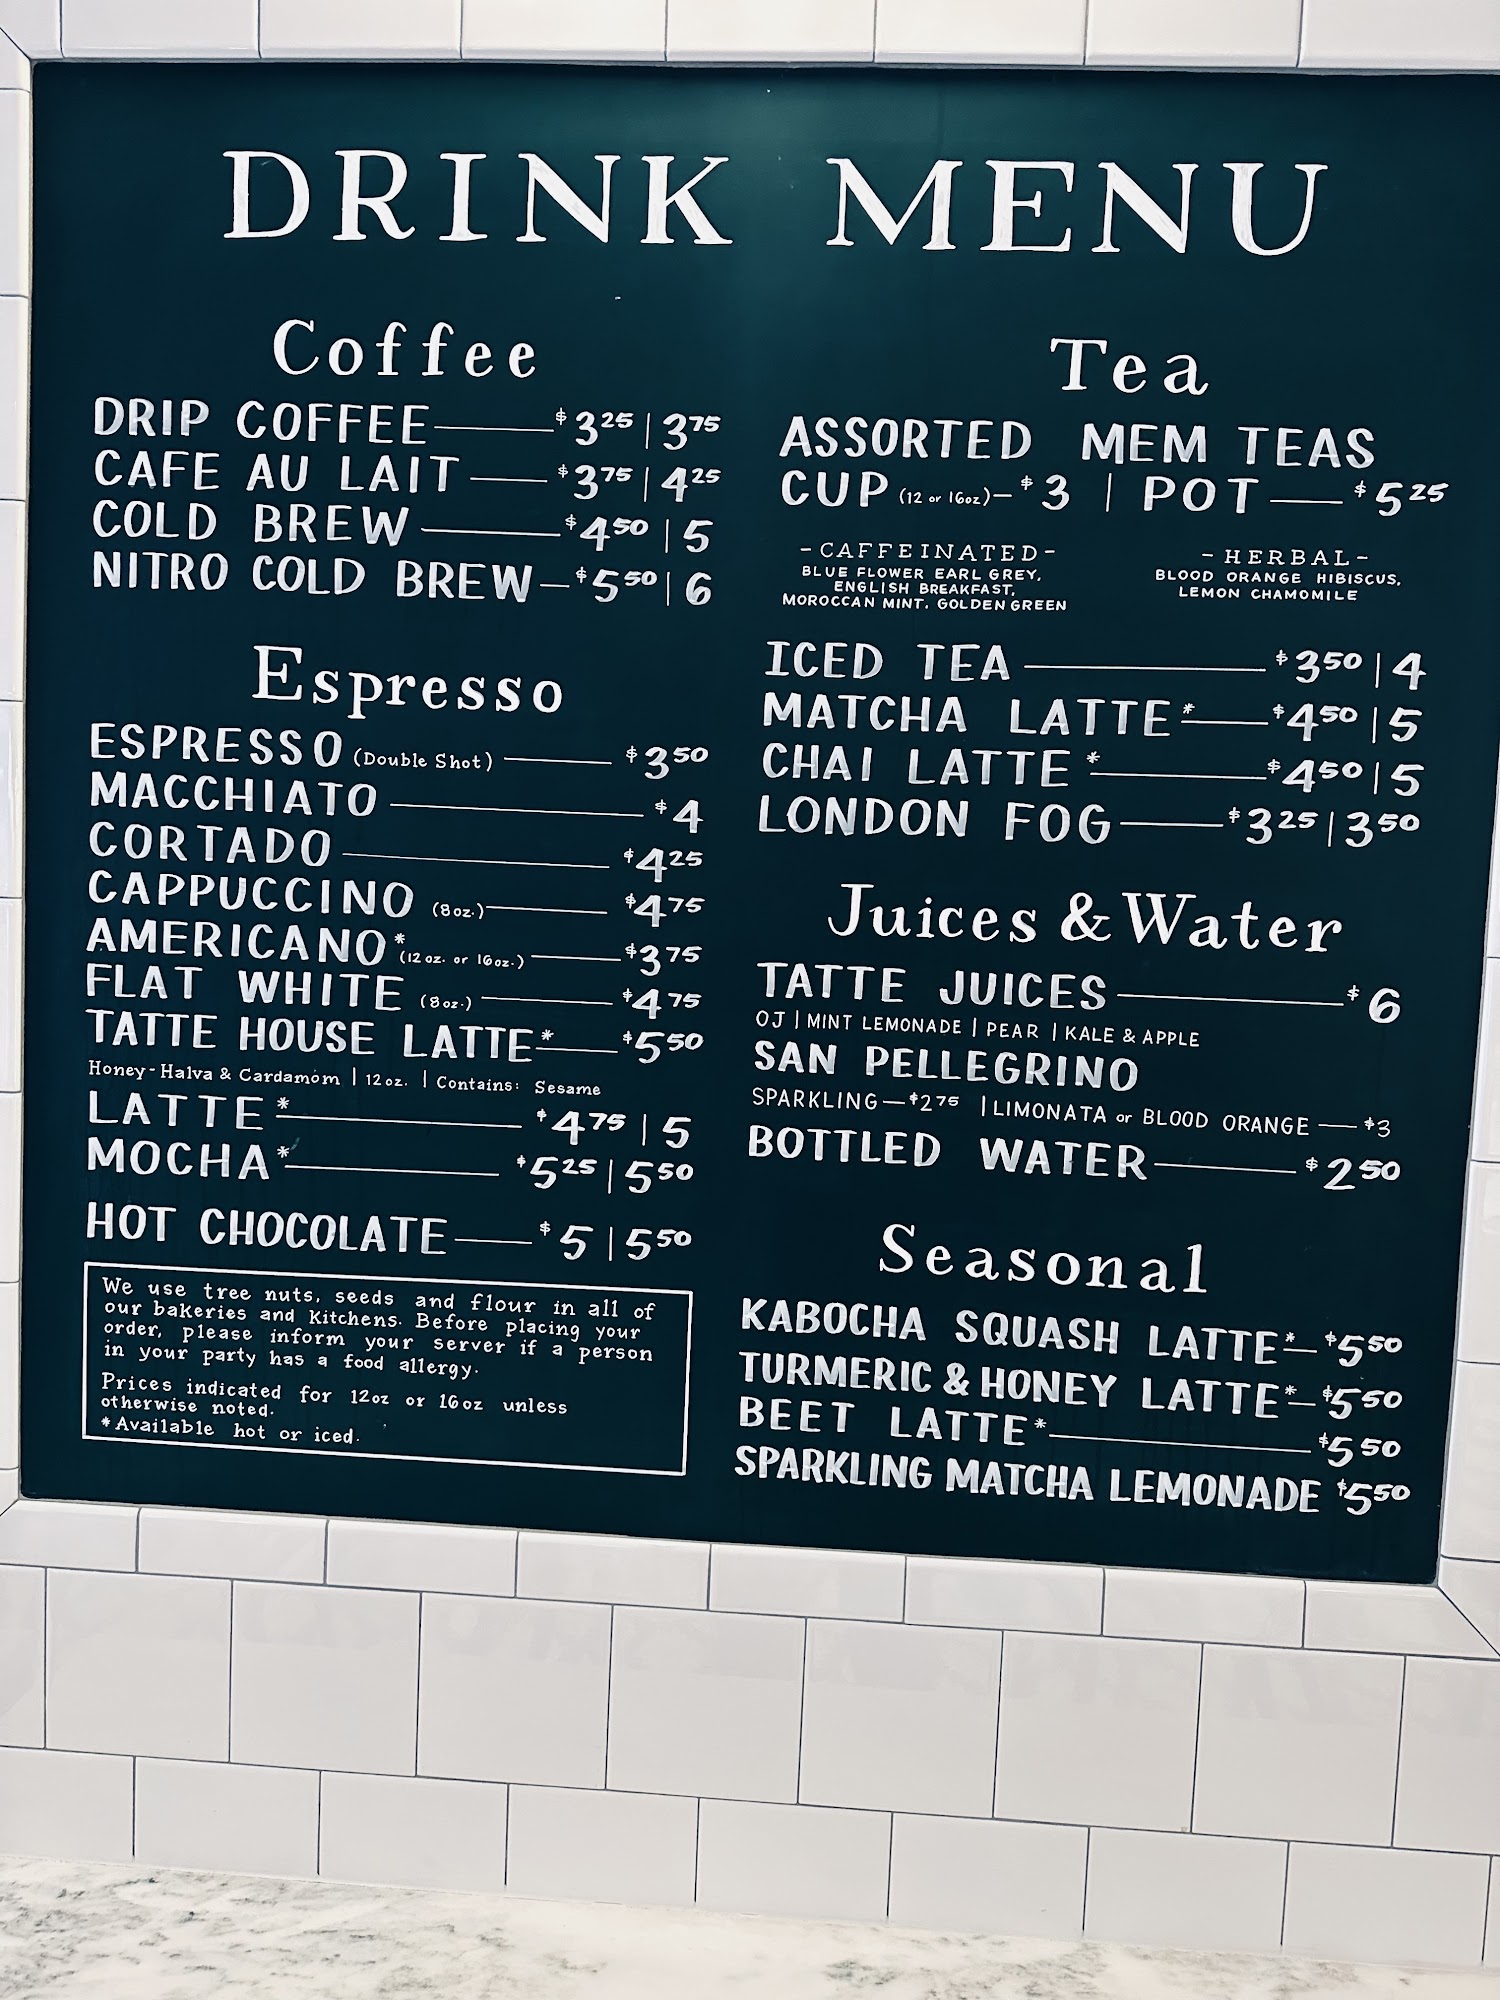 DRINK MENU
Coffee
DRIP COFFEE $3.25 | 3.75
CAFE AU LAIT $3.75 | 4.25
COLD BREW $4.50 | 5
NITRO COLD BREW $5.50 | 6
Espresso
ESPRESSO (Double Shot) $3.50
MACCHIATO $4
CORTADO $4.25
CAPPUCCINO (8oz.) $4.75
AMERICANO* (12 oz. or 16oz.) $3.75
FLAT WHITE (8oz.) $4.75
TATTE HOUSE LATTE* $5.50
Honey-Halva & Cardamom | 12oz. | Contains: Sesame
LATTE* $4.75 | 5
MOCHA* $5.25 | 5.50
HOT CHOCOLATE $5 | 5.50
We use tree nuts, seeds and flour in all of
our bakeries and Kitchens. Before placing your
order, please inform your server if a person
in your party has a food allergy.
Prices indicated for 12oz or 16oz unless
otherwise noted.
*Available hot or iced.
Tea
ASSORTED MEM TEAS
CUP (12 or 16oz) $3 | POT $5.25
-CAFFEINATED-
BLUE FLOWER EARL GREY,
ENGLISH BREAKFAST,
MOROCCAN MINT, GOLDEN GREEN
-HERBAL-
BLOOD ORANGE HIBISCUS,
LEMON CHAMOMILE
ICED TEA $3.50 | 4
MATCHA LATTE* $4.50 | 5
CHAI LATTE* $4.50 | 5
LONDON FOG $3.25 | 3.50
Juices & Water
TATTE JUICES $6
OJ | MINT LEMONADE | PEAR | KALE & APPLE
SAN PELLEGRINO
SPARKLING—$2.75 | LIMONATA or BLOOD ORANGE — $3
BOTTLED WATER $2.50
Seasonal
KABOCHA SQUASH LATTE* $5.50
TURMERIC & HONEY LATTE* $5.50
BEET LATTE* $5.50
SPARKLING MATCHA LEMONADE $5.50